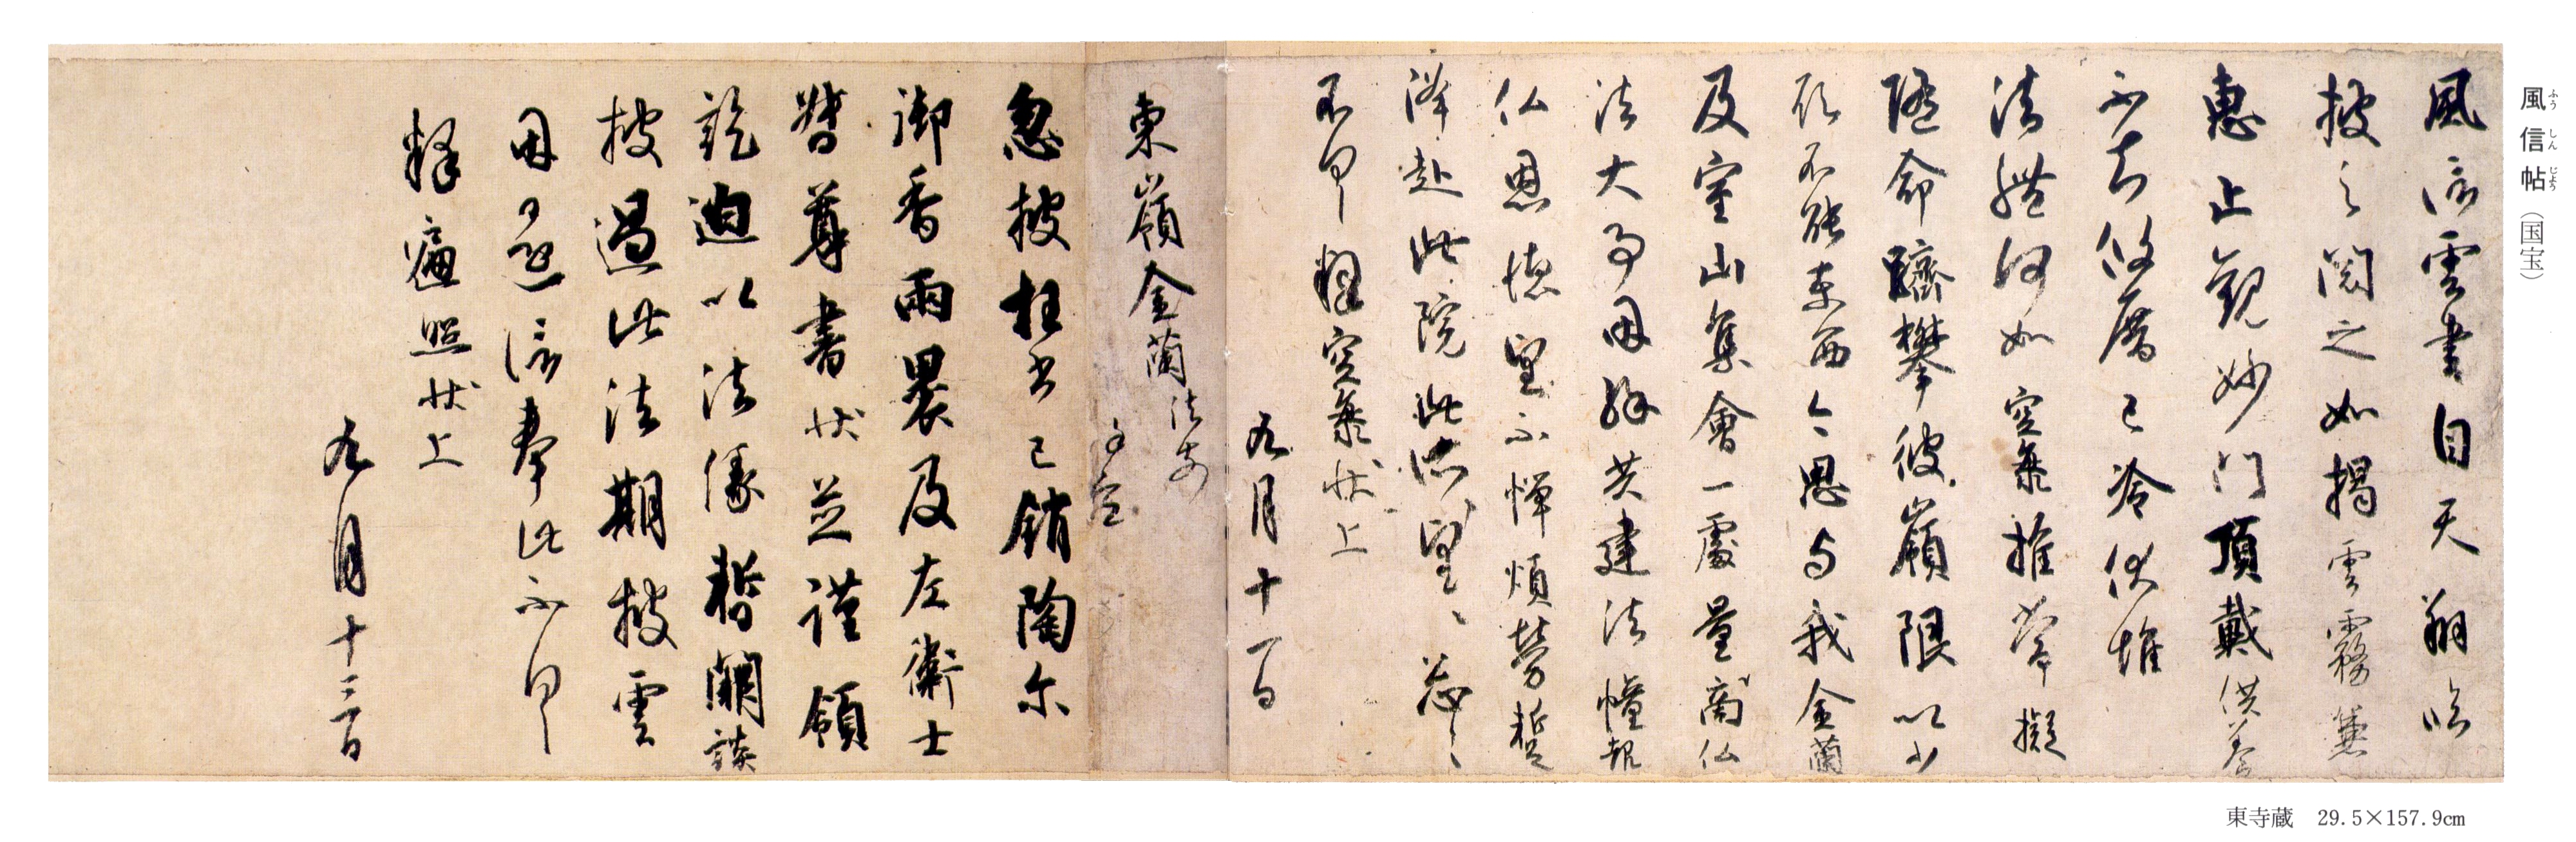 風信帖（国宝）
ふうしんじょう
風信雲書自天翔臨
披之閲之如掲雲霧兼
恵止觀妙門頂戴供養
不知攸厝已冷伏惟
法體何如空海推常擬
随命躋攀彼嶺限以少
願不能東西今思与我金蘭
及室山集會一處量商仏
法大事因縁共建法幢報
仏恩徳望不憚煩勞蹔
降赴此院此所々望々忩々
不具釋空海状上
九月十一日
東嶺金蘭法前
謹空
忽披枉書已銷陶尓
御香兩裹及左衛士
督尊書状並謹領
訖迫以法縁暫闕談
披過此法期披雲
因還信奉此不具
釋遍照状上
九月十三日
東寺蔵　29.5×157.9cm